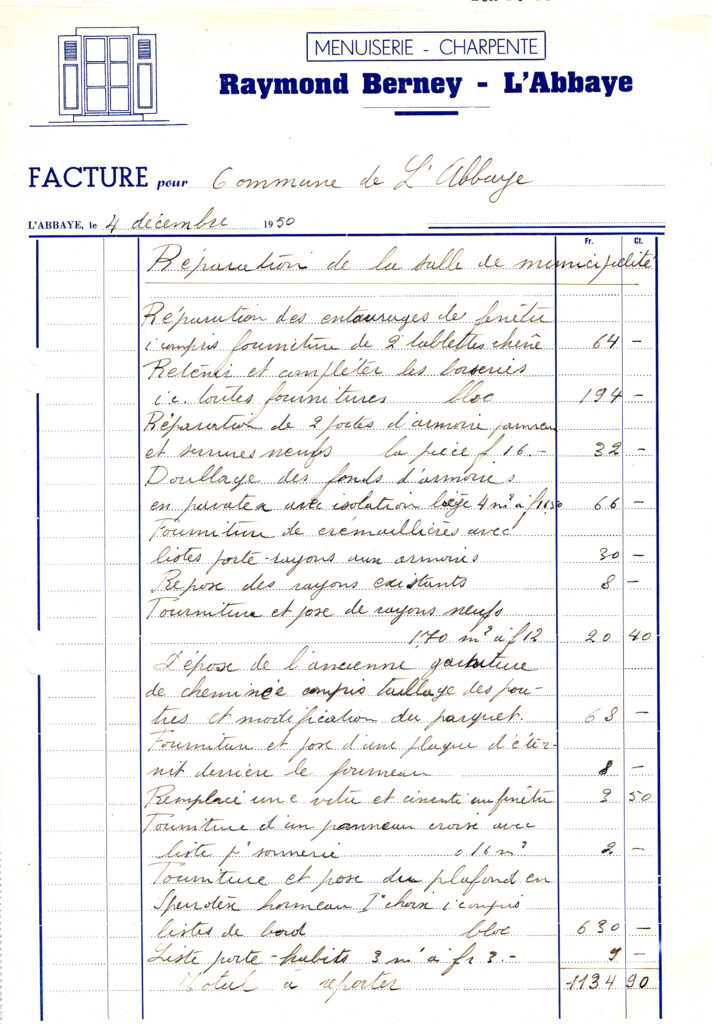 MENUISERIE - CHARPENTE
Raymond Berney - L'Abbaye
FACTURE pour Commune de L'Abbaye
L'ABBAYE, le 4 décembre 1950
Fr. Ct.
Réparation de la salle de municipalité
Réparation des entourages de fenêtre
i compris fourniture de 2 tablettes chêne 64 -
Retenir et compléter les boiseries
i.c. toutes fournitures bloc 194 -
Réparation de 2 portes d'armoire panneau
et serrures neufs la pièce f 16.- 32 -
Doublage des fonds d'armoires
en pavatex avec isolation liège 4 m² à f 16,50 66 -
Fourniture de crémaillières avec
listes porte-rayons aux armoires 30 -
Repose des rayons existants 8 -
Fourniture et pose de rayons neufs
1,70 m² à f 12 20 40
Dépose de l'ancienne garniture
de cheminée compris taillage des pou-
tres et modification du parquet. 68 -
Fourniture et pose d'une plaque d'éter-
nit derrière le fourneau 8 -
Remplacé une vitre et cimenté une fenêtre 3 50
Fourniture d'un panneau croisé avec
liste p' sonnerie 0 16 m² 2 -
Fourniture et pose du plafond en
horneau I° choix i compris
listes de bord bloc 630 -
Liste porte-habits 3 m' à fr 3.- 9 -
Total à reporter 1134 90